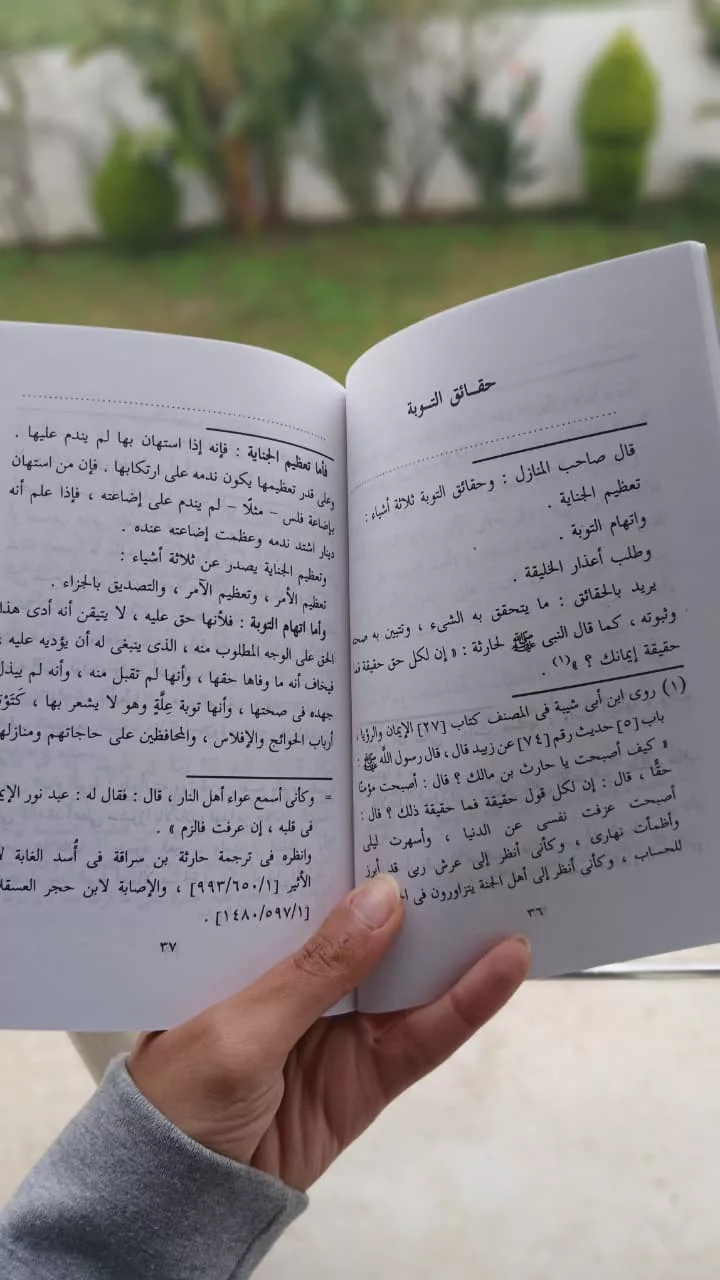 حقائق التوبة
قال صاحب المنازل : وحقائق التوبة ثلاثة أشياء :
تعظيم الجناية .
واتهام التوبة .
وطلب أعذار الخليقة .
يريد بالحقائق : ما يتحقق به الشىء ، وتتبين به
وثبوته ، كما قال النبى ﷺ لحارثة : « إن لكل حق حقيقة
حقيقة إيمانك ؟ »(١) .
(١) روى ابن أبى شيبة فى المصنف كتاب [٢٧] الإيمان والرؤيا ،
باب [٥] حديث رقم [٧٤] عن زبيد قال ، قال رسول الله ﷺ :
« كيف أصبحت يا حارث بن مالك ؟ قال : أصبحت مؤمنًا
حقًّا ، قال : إن لكل قول حقيقة فما حقيقة ذلك ؟ قال :
أصبحت عزفت نفسى عن الدنيا ، وأسهرت ليلى
وأظمأت نهارى ، وكأنى أنظر إلى عرش ربى قد أبرز
للحساب ، وكأنى أنظر إلى أهل الجنة يتزاورون فى
٣٦
فأما تعظيم الجناية : فإنه إذا استهان بها لم يندم عليها .
وعلى قدر تعظيمها يكون ندمه على ارتكابها . فإن من استهان
بإضاعة فلس - مثلًا - لم يندم على إضاعته ، فإذا علم أنه
دينار اشتد ندمه وعظمت إضاعته عنده .
وتعظيم الجناية يصدر عن ثلاثة أشياء :
تعظيم الأمر ، وتعظيم الآمر ، والتصديق بالجزاء .
وأما اتهام التوبة : فلأنها حق عليه ، لا يتيقن أنه أدى هذا
الحق على الوجه المطلوب منه ، الذى ينبغى له أن يؤديه عليه ،
فيخاف أنه ما وفاها حقها ، وأنها لم تقبل منه ، وأنه لم يبذل
جهده فى صحتها ، وأنها توبة عِلَّةٍ وهو لا يشعر بها ،
أرباب الحوائج والإفلاس ، والمحافظين على حاجاتهم ومنازلهم
= وكأنى أسمع عواء أهل النار ، قال : فقال له : عبد نور
فى قلبه ، إن عرفت فالزم » .
وانظره فى ترجمة حارثة بن سراقة فى أُسد الغابة
الأثير [٩٩٣/٦٥٠/١] ، والإصابة لابن حجر
[١٤٨٠/٥٩٧/١] .
٣٧